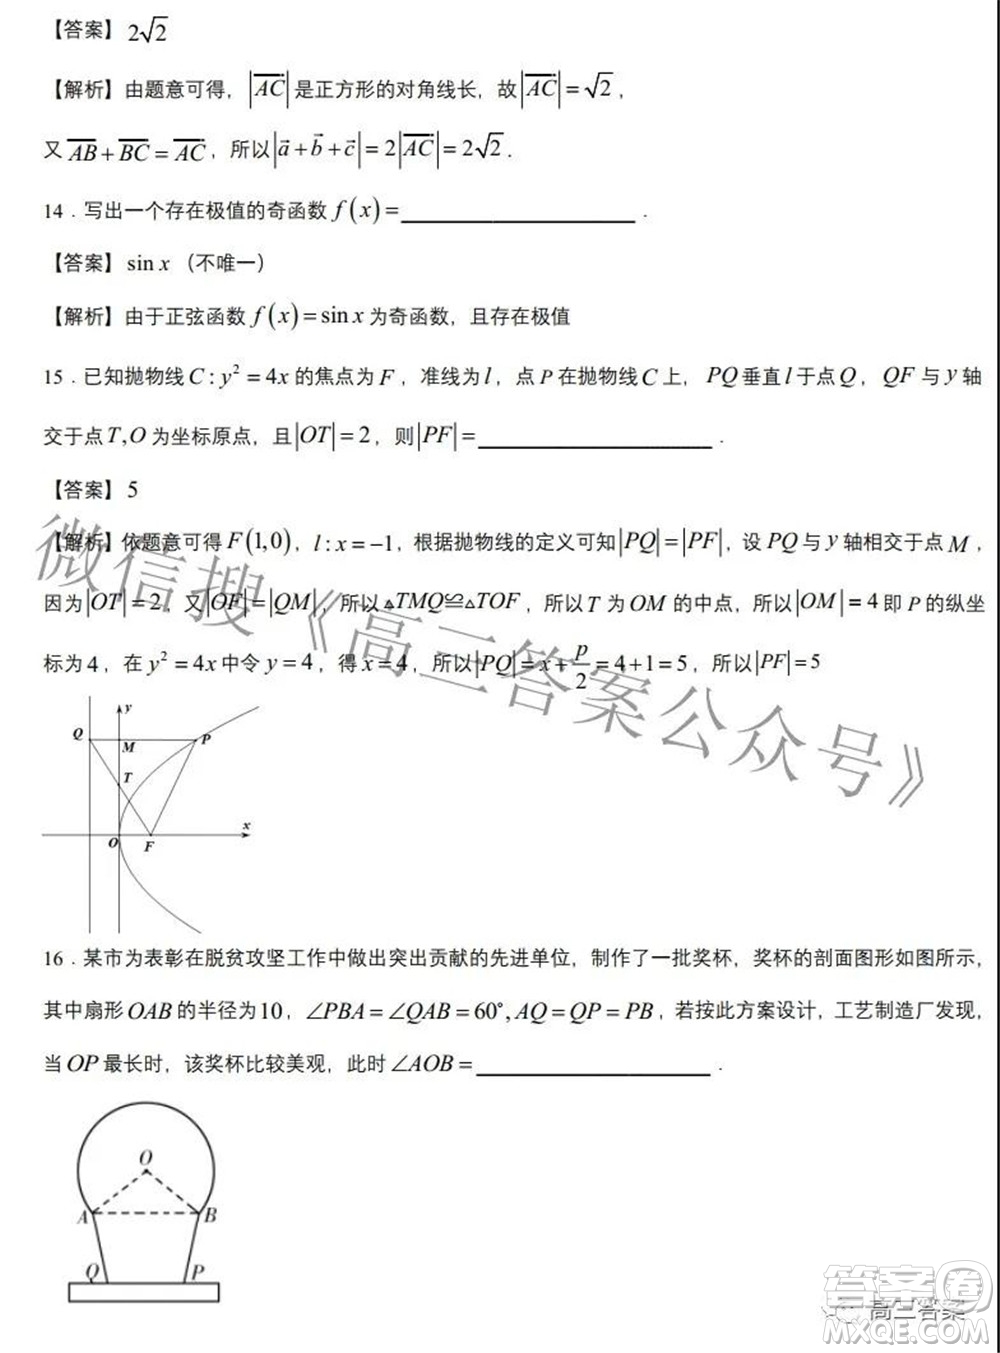 【答案】2√2
【解析】由题意可得，|AC|是正方形的对角线长，故|AC|=√2，
又AB+BC=AC，所以|a+b+c|=2|AC|=2√2．
14．写出一个存在极值的奇函数 f(x)=____________．
【答案】sin x（不唯一）
【解析】由于正弦函数 f(x)=sin x 为奇函数，且存在极值
15．已知抛物线C:y²=4x的焦点为F，准线为l，点P在抛物线C上，PQ垂直l于点Q，QF与y轴
交于点T,O为坐标原点，且|OT|=2，则|PF|=____________．
【答案】5
【解析】依题意可得F(1,0)，l:x=-1，根据抛物线的定义可知|PQ|=|PF|，设PQ与y轴相交于点M，
因为|OT|=2，又|OF|=|QM|，所以△TMQ≌△TOF，所以T为OM的中点，所以|OM|=4即P的纵坐
标为4，在y²=4x中令y=4，得x=4，所以|PQ|=x+p/2=4+1=5，所以|PF|=5
y
Q
M
P
T
x
O
F
微信搜《高三答案公众号》
16．某市为表彰在脱贫攻坚工作中做出突出贡献的先进单位，制作了一批奖杯，奖杯的剖面图形如图所示，
其中扇形OAB的半径为10，∠PBA=∠QAB=60°,AQ=QP=PB，若按此方案设计，工艺制造厂发现，
当OP最长时，该奖杯比较美观，此时∠AOB=____________．
O
A
B
Q
P
高三答案
答案圈
MXQE.COM